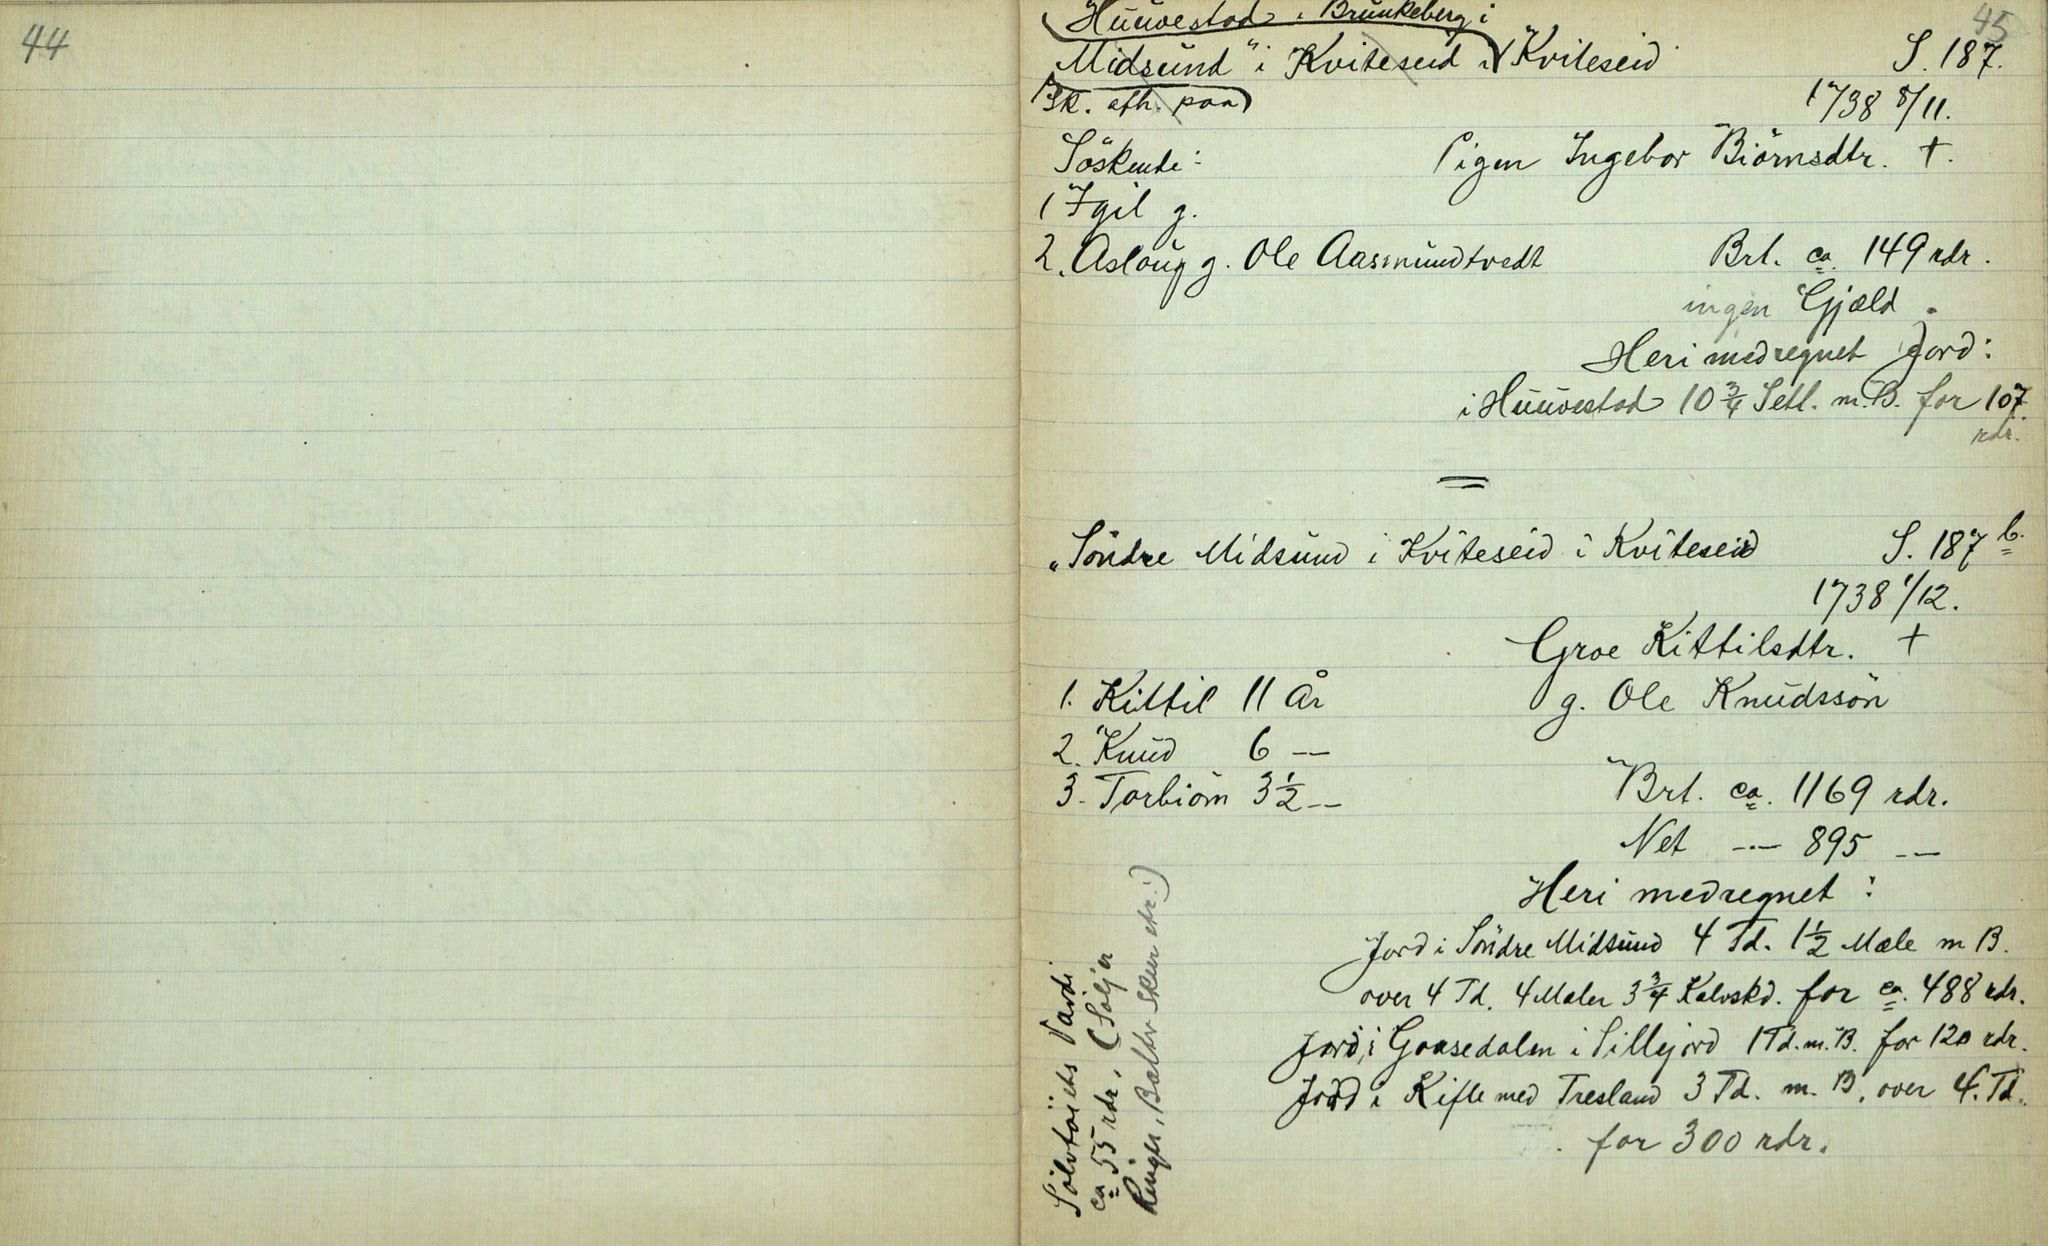 44
45
Huuvestad i Brunkeberg i
Midsund" i Kviteseid i Kviteseid S. 187.
Sk. afh. paa 1738 8/11.
Söskende: Pigen Ingebor Biörnsdtr. +.
1 Egil g.
2. Aslaug g. Ole Aasmundtvedt Brt. ca. 149 rdr.
ingen Gjæld.
Heri medregnet Jord:
i Huuvestad 10 3/4 Setl. m. B. for 107
rdr.
„Söndre Midsund i Kviteseid i Kviteseid S. 187 b.
1738 1/12.
Groe Kittilsdtr. +
1. Kittil 11 År g. Ole Knudssön
2. Knud 6 —
3. Torbiörn 3 1/2 — Brt. ca. 1169 rdr.
Net — 895 —
Heri medregnet:
Jord i Söndre Midsund 4 Td. 1 1/2 Mæle m B.
over 4 Td. 4 Mæler 3 3/4 Kalvskd. for ca. 488 rdr.
Jord i Gaasedalen i Sillejord 1 Td. m. B. for 120 rdr.
Jord i Kifle med Tresland 3 Td. m. B. over 4 Td.
for 300 rdr.
Sölvtöiets Værdi
ca 55 rdr. (Söljer
Ringer, Bælter Skeer etc.)